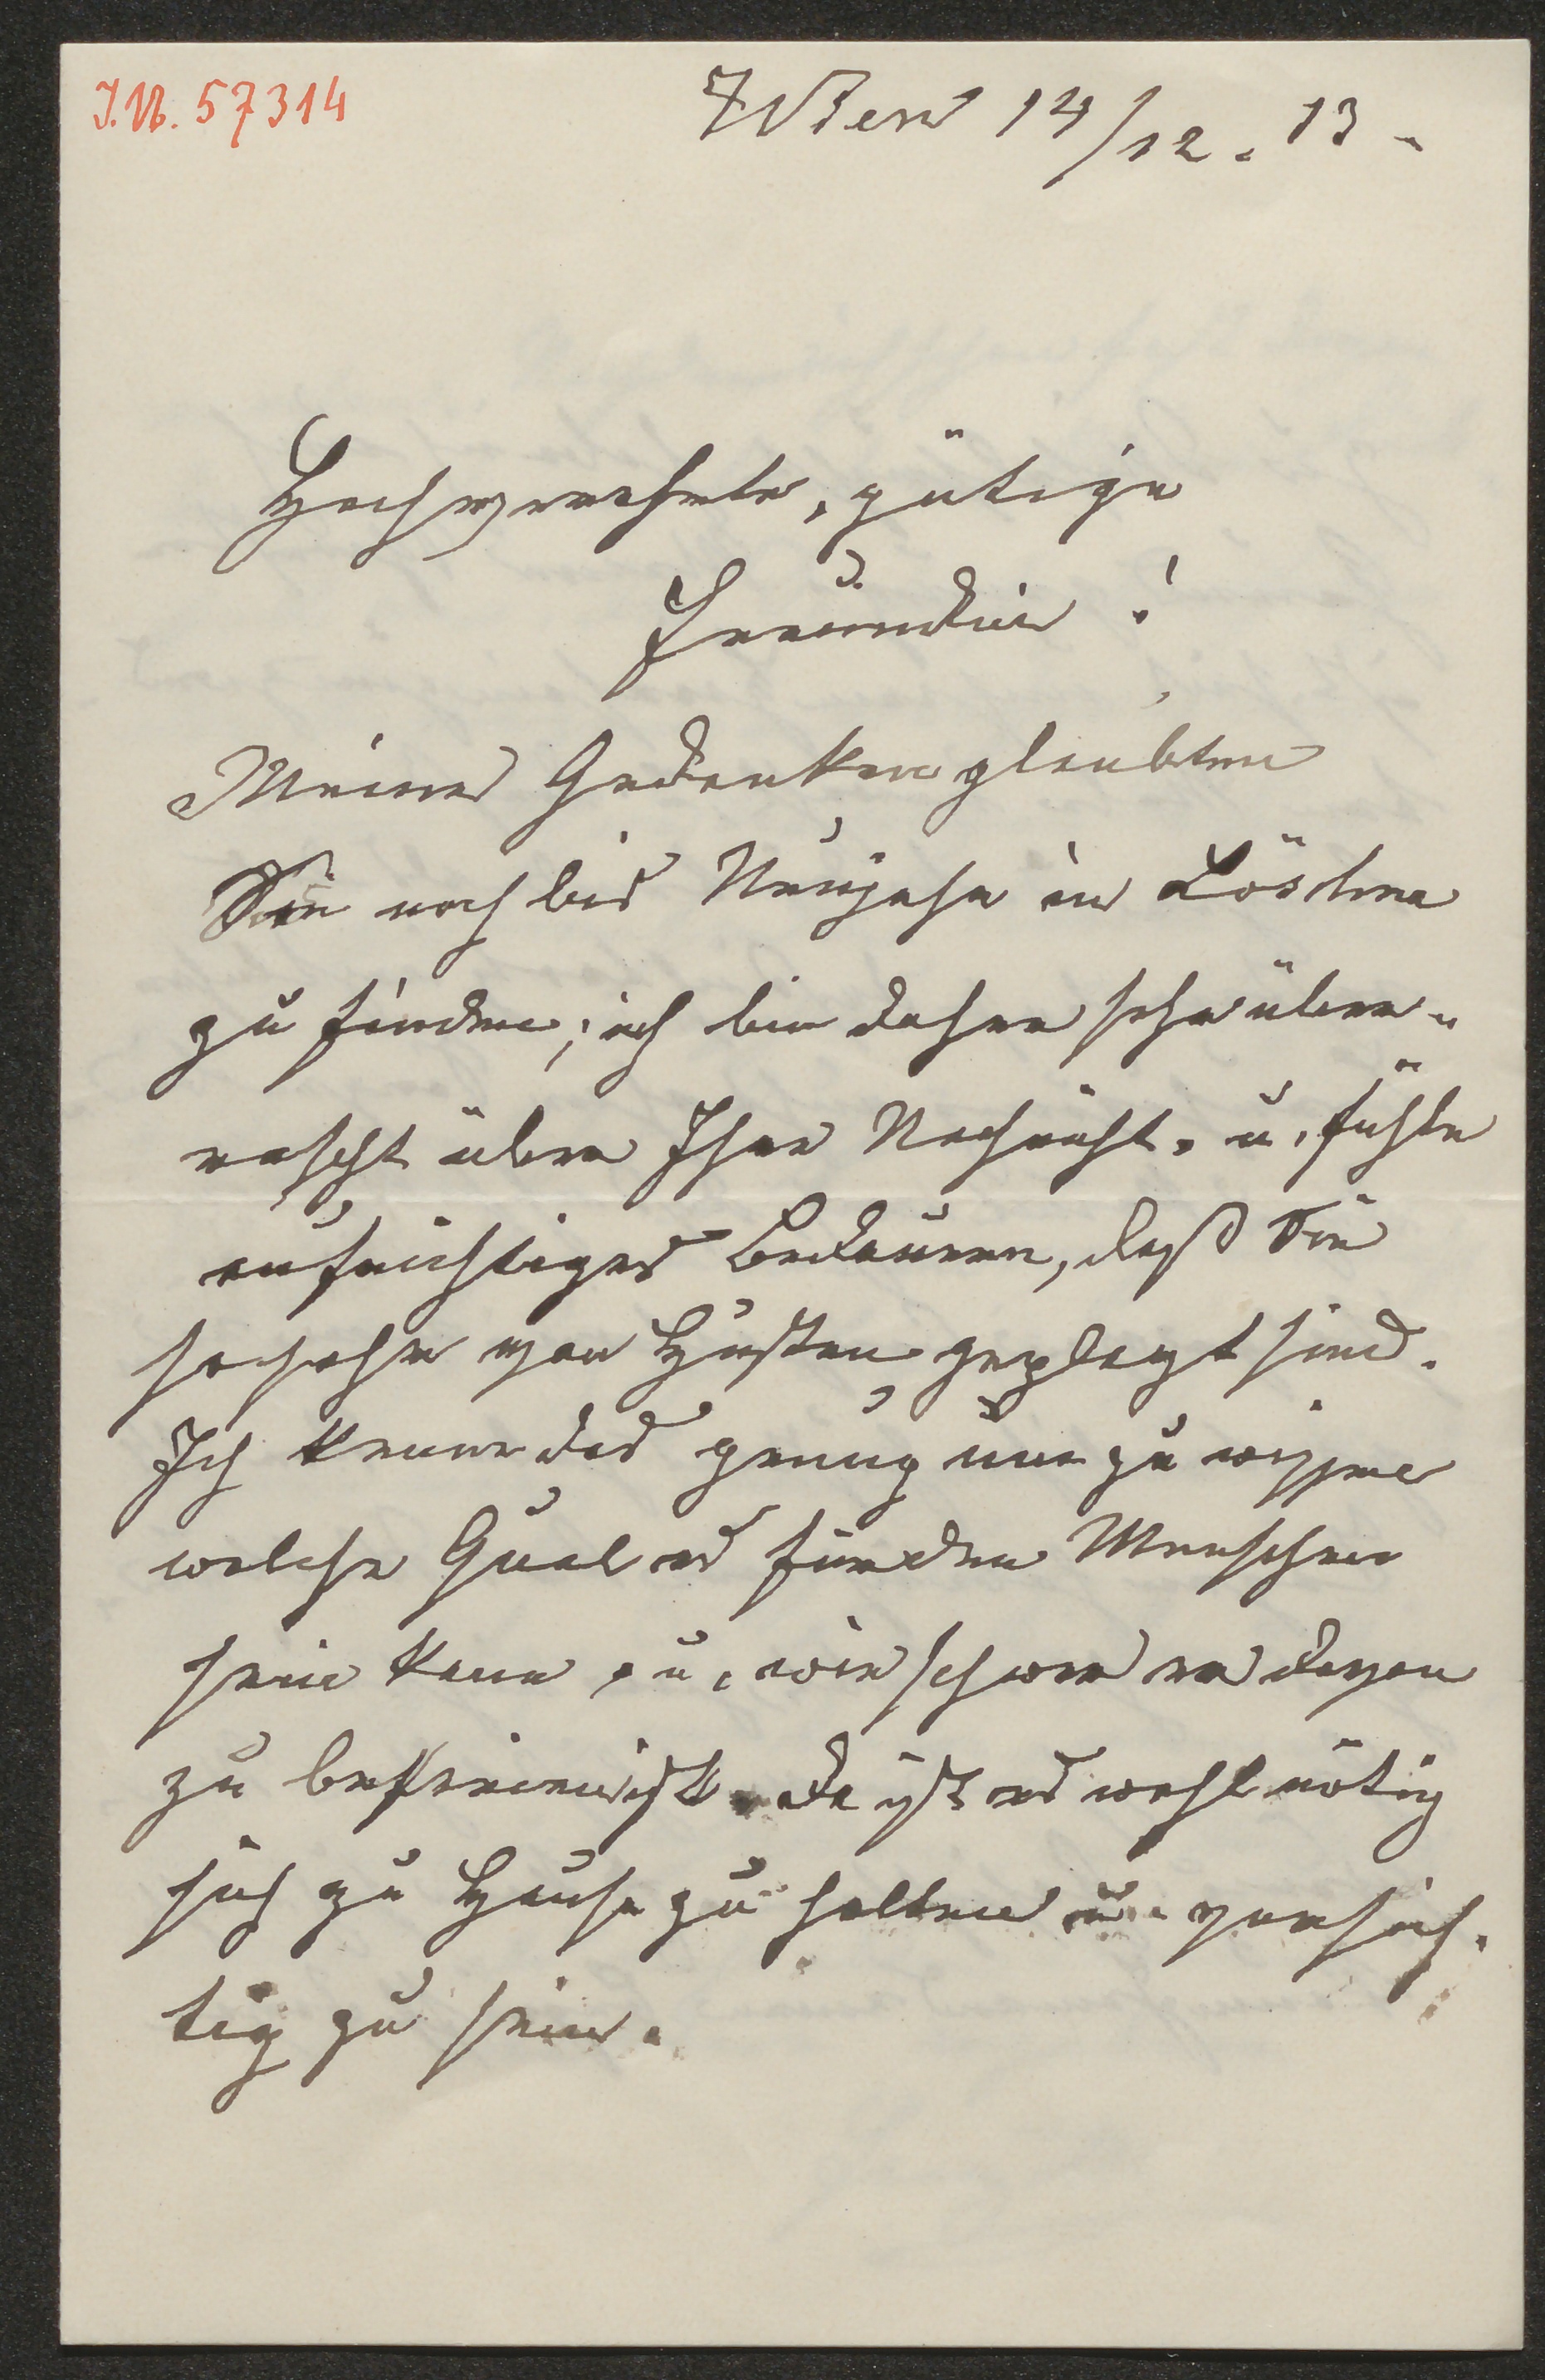 I.N. 57314
Wien 14/12. 13 -
Hochverehrte, gütige
Freundin!
Meine Gedanken glaubten
Sie noch bis Neujahr in
zu finden; ich bin daher sehr über-
rascht über Ihre Nachricht, u. fühle
aufrichtiges Bedauern, daß Sie
so sehr von Husten geplagt sind.
Ich kenne das genug um zu wissen
welche Qual es für den Menschen
sein kann, u. wie schwer er davon
zu befreien ist, da ist es wohl nötig
sich zu Hause zu halten u. vorsich-
tig zu sein.